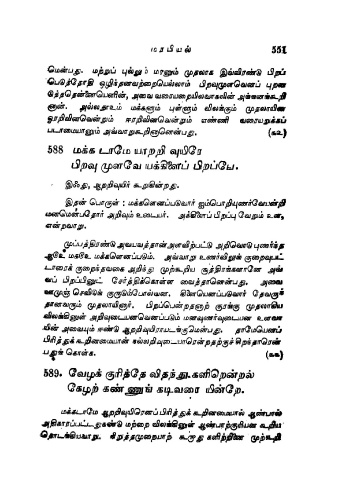 மரபியல் 551
மென்பது. மற்றுப் புல்லும் மரனும் முதலாக இவ்விரண்டு பிறப்
பெடுத்தோதி ஒழிந்தனவற்றையெல்லாம் பிறவுமுளவெனப் புறன
டுத்ததென்னையெனின், அவை வரையறையிலவாகலின் அங்ஙனங்கூறி
னான். அல்லதூஉம் மக்களும் புள்ளும் விலங்கும் முதலாயின
ஓரறிவினவென்றும் ஈரறிவினவென்றும் எண்ணி வரையறுக்கப்
படாமையானும் அவ்வாறுகூறினானென்பது. (௩௨)
588 மக்க டாமே யாறறி வுயிரே
பிறவு முளவே யக்கிளைப் பிறப்பே.
இஃது, ஆறறிவுயிர் கூறுகின்றது.
இதன் பொருள் : மக்களெனப்படுவார் ஐம்பொறியுணர்வேயன்றி
மனமென்பதோர் அறிவும் உடையர். அக்கிளைப் பிறப்பு வேறும் உள,
என்றவாறு.
முப்பத்திரண்டு அவயவத்தான் அளவிற்பட்டு அறிவொடு புணர்ந்த
ஆடூஉ மகடூஉ மக்களெனப்படும். அவ்வாறு உணர்விலுங் குறைவுபட்
டாரைக் குறைந்தவகை அறிந்து முற்கூறிய சூத்திரங்களானே அவ்
வப் பிறப்பினுட் சேர்த்திக்கொள்ள வைத்தானென்பது. அவை
ஊமுஞ் செவிடுங் குருடும்போல்வன. கிளையெனப்படுவார் தேவருந்
தானவரும் முதலாயினார். பிறப்பென்றதனாற் குரங்கு முதலாகிய
விலங்கினுள் அறிவுடையனவெனப்படும் மனவுணர்வுடையன உளவா
யின் அவையும் ஈண்டு ஆறறிவுயிராயடங்குமென்பது. தாமேயெனப்
பிரித்துக் கூறினமையான் நல்லறிவுடையாரென்றதற்குச் சிறந்தாரென்
பதுங் கொள்க. (௩௩)
589. வேழக் குரித்தே விதந்து.களிறென்றல்
கேழற் கண்ணுங் கடிவரை யின்றே.
மக்கடாமே ஆறறிவுயிரெனப் பிரித்துக் கூறினமையால் ஆண்பால்
அதிகாரப்பட்டதுகண்டு மற்றை விலங்கினுள் ஆண்பாற்குரியன கூறிய
தொடங்கியவாறு. நிறுத்தமுறையாற் களிற்றினை முற்கூறி